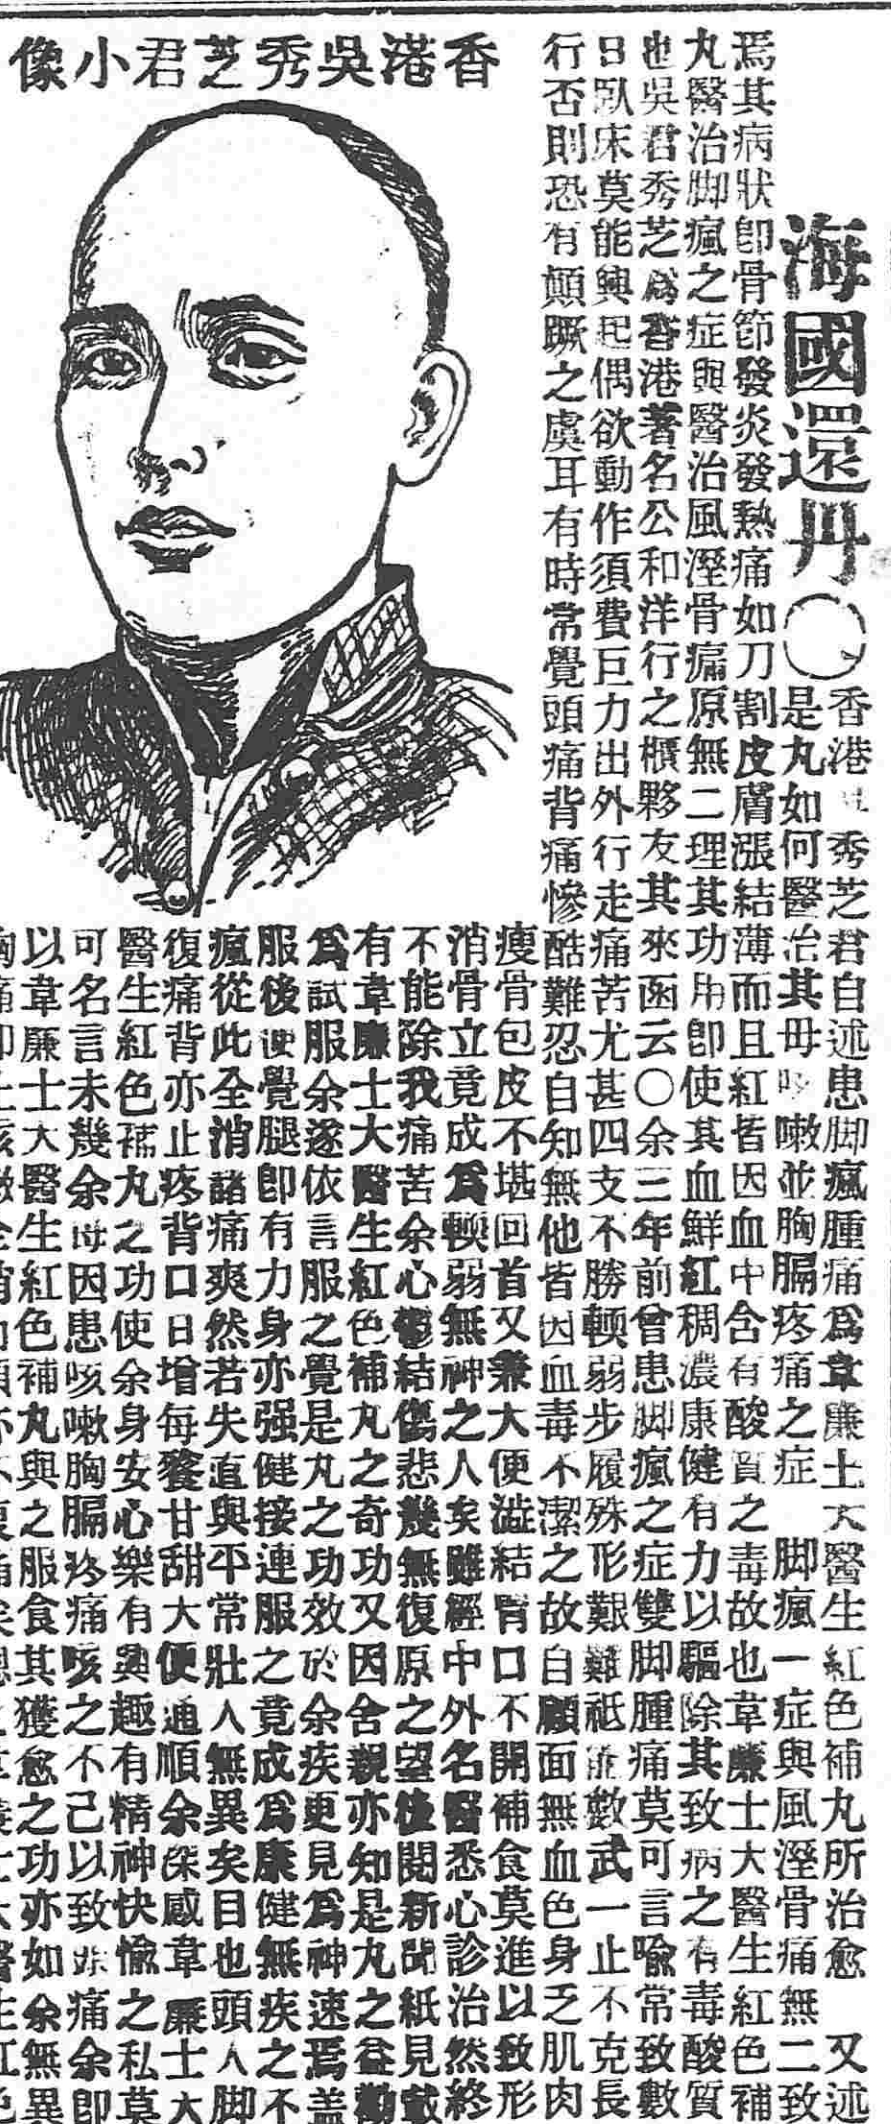 香港吳秀芝君小像
海國還丹
〇香港秀芝君自述患脚瘋腫痛爲韋廉士大醫生紅色補丸所治愈 又述
是丸如何醫治其母咳嗽並胸膈疼痛之症 脚瘋一症與風溼骨痛無二致
焉其病狀卽骨節發炎發熱痛如刀割皮膚漲結薄而且紅皆因血中含有酸質之毒故也韋廉士大醫生紅色補
丸醫治脚瘋之症與醫治風溼骨痛原無二理其功用卽使其血鮮紅稠濃康健有力以驅除其致病之有毒酸質
也吳君秀芝爲香港著名公和洋行之櫃夥友其來函云〇余三年前曾患脚瘋之症雙脚腫痛莫可言喻常致數
日臥床莫能興起偶欲動作須費巨力出外行走痛苦尤甚四支不勝輭弱步履殊形艱難祗數武一止不克長
行否則恐有顚蹶之虞耳有時常覺頭痛背痛慘酷難忍自知無他皆因血毒不潔之故自顧面無血色身乏肌肉
瘦骨包皮不堪回首又兼大便澁結胃口不開補食莫進以致形
消骨立竟成爲輭弱無神之人矣雖經中外名醫悉心診治然終
不能除我痛苦余心鬱結傷悲幾無復原之望後閱新聞紙見載
有韋廉士大醫生紅色補丸之奇功又因舍親亦知是丸之益勸
爲試服余遂依言服之覺是丸之功效於余疾更見爲神速焉盖
服後便覺腿卽有力身亦强健接連服之竟成爲康健無疾之不
瘋從此全消諸痛爽然若失直與平常壯人無異矣目也頭人脚
復痛背亦止疼背口日增每餐甘甜大便通順余深感韋廉士大
醫生紅色補丸之功使余身安心樂有興趣有精神快愉之私莫
可名言未幾余母因患咳嗽胸膈疼痛咳之不已以致痛余卽
以韋廉士大醫生紅色補丸與之服食其獲愈之功亦如余無異